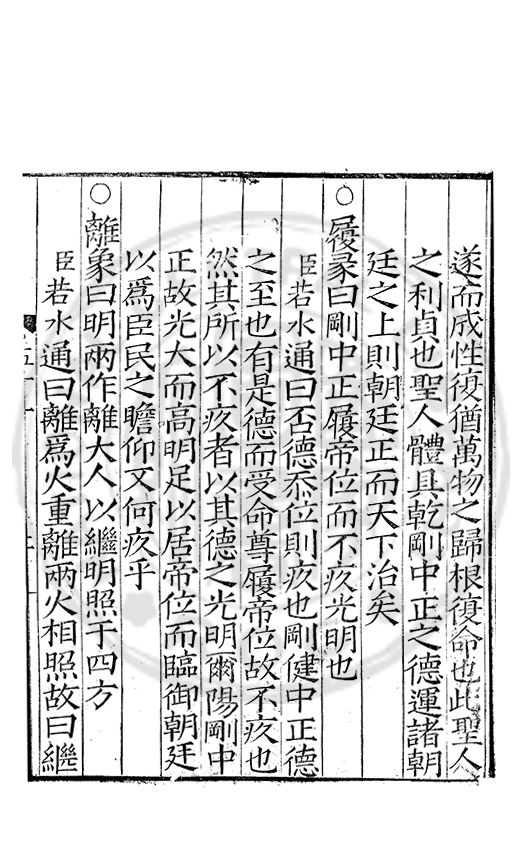 遂而成性復猶萬物之歸根復命也此聖人
之利貞也聖人體具乾剛中正之德運諸朝
廷之上則朝廷正而天下治矣
○履彖曰剛中正履帝位而不疚光明也
臣若水通曰否德忝位則疚也剛健中正德
之至也有是德而受命尊履帝位故不疚也
然其所以不疚者以其德之光明爾陽剛中
正故光大而高明足以居帝位而臨御朝廷
以為臣民之瞻仰又何疚乎
○離象曰明兩作離大人以繼明照于四方
臣若水通曰離為火重離兩火相照故曰繼